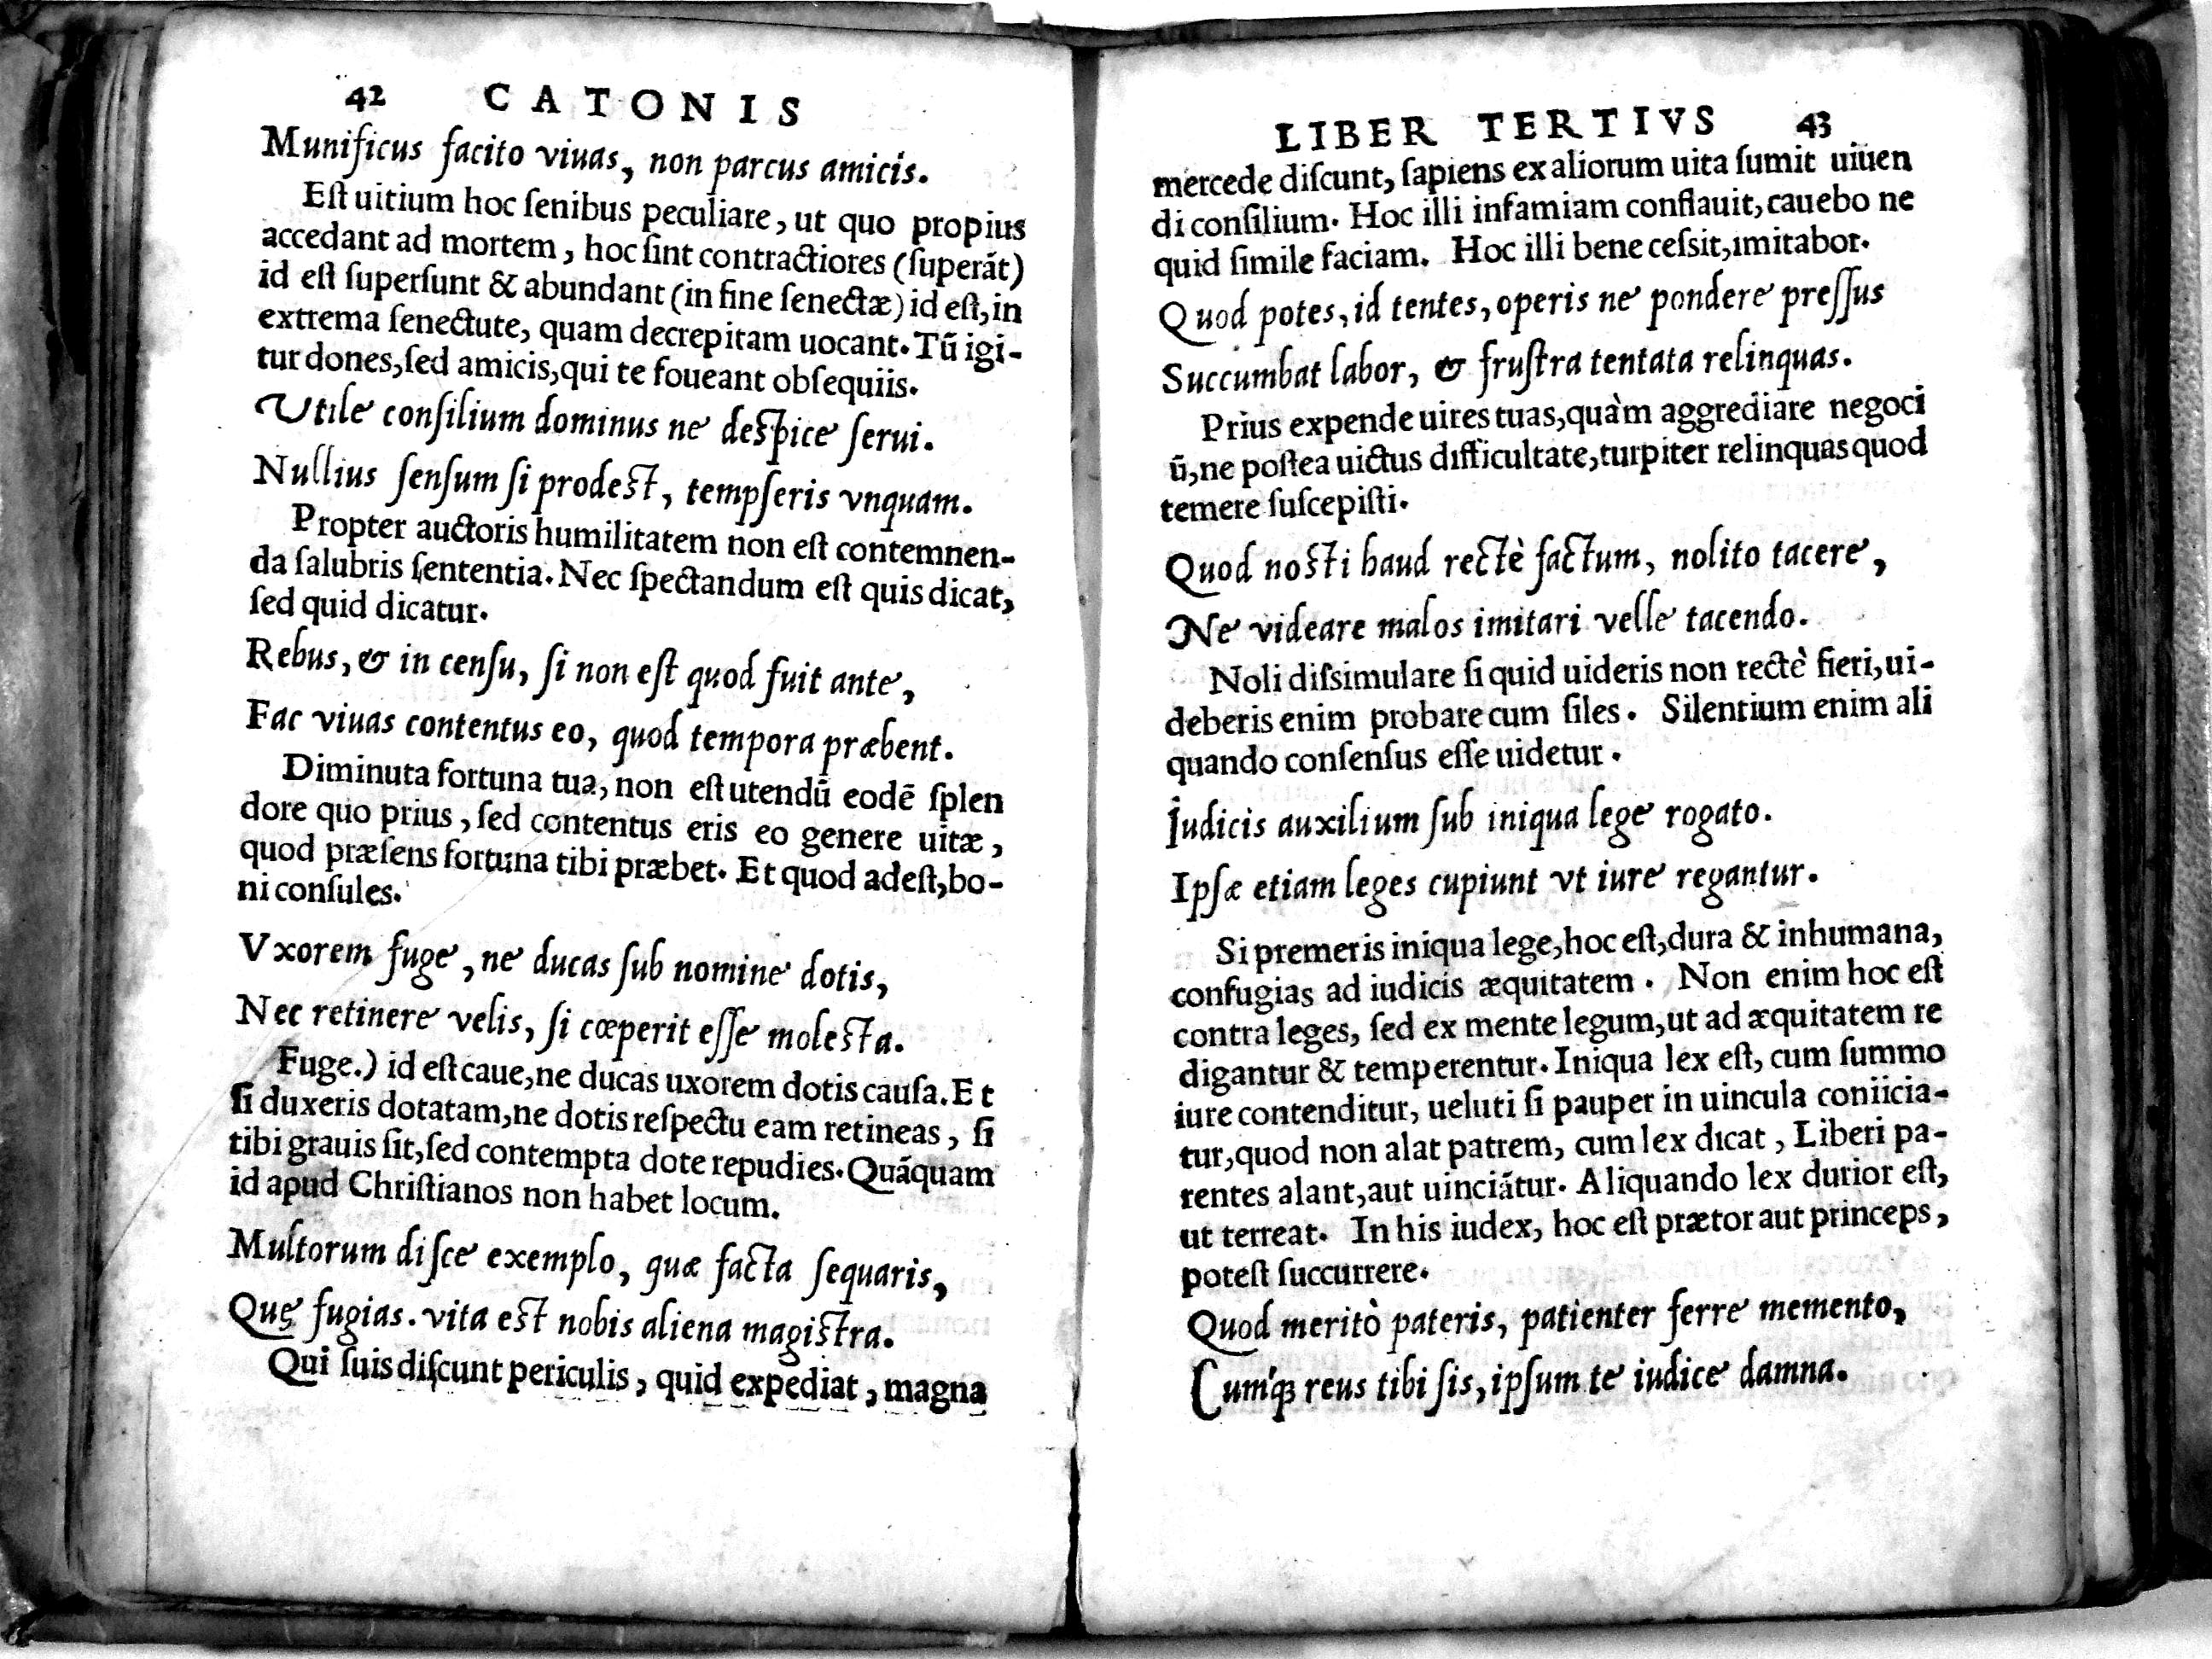 42 CATONIS
Munificus facito viuas, non parcus amicis.
Eſt uitium hoc ſenibus peculiare, ut quo propius
accedant ad mortem, hoc ſint contractiores (ſuperãt)
id eſt ſuperſunt & abundant (in fine ſenectæ) id eſt, in
extrema ſenectute, quam decrepitam uocant. Tũ igi-
tur dones, ſed amicis, qui te foueant obſequiis.
Vtile conſilium dominus ne deſpice ſerui.
Nullius ſenſum ſi prodeſt, tempſeris vnquam.
Propter auctoris humilitatem non eſt contemnen-
da ſalubris ſententia. Nec ſpectandum eſt quis dicat,
ſed quid dicatur.
Rebus, & in cenſu, ſi non eſt quod fuit ante,
Fac viuas contentus eo, quod tempora præbent.
Diminuta fortuna tua, non eſt utendũ eodẽ ſplen
dore quo prius, ſed contentus eris eo genere uitæ,
quod præſens fortuna tibi præbet. Et quod adeſt, bo-
ni conſules.
Vxorem fuge, ne ducas ſub nomine dotis,
Nec retinere velis, ſi cœperit eſſe moleſta.
Fuge.) id eſt caue, ne ducas uxorem dotis cauſa. Et
ſi duxeris dotatam, ne dotis reſpectu eam retineas, ſi
tibi grauis ſit, ſed contempta dote repudies. Quãquam
id apud Chriſtianos non habet locum.
Multorum diſce exemplo, quæ facta ſequaris,
Quę fugias. vita eſt nobis aliena magiſtra.
Qui ſuis diſcunt periculis, quid expediat, magna
LIBER TERTIVS 43
mercede diſcunt, ſapiens ex aliorum uita ſumit uiuen
di conſilium. Hoc illi infamiam conflauit, cauebo ne
quid ſimile faciam. Hoc illi bene ceſsit, imitabor.
Quod potes, id tentes, operis ne pondere preſſus
Succumbat labor, & fruſtra tentata relinquas.
Prius expende uires tuas, quàm aggrediare negoci
ũ, ne poſtea uictus difficultate, turpiter relinquas quod
temere ſuſcepiſti.
Quod noſti haud rectè factum, nolito tacere,
Ne videare malos imitari velle tacendo.
Noli diſsimulare ſi quid uideris non rectè fieri, ui-
deberis enim probare cum ſiles. Silentium enim ali
quando conſenſus eſſe uidetur.
Iudicis auxilium ſub iniqua lege rogato.
Ipſæ etiam leges cupiunt vt iure regantur.
Si premeris iniqua lege, hoc eſt, dura & inhumana,
confugias ad iudicis æquitatem. Non enim hoc eſt
contra leges, ſed ex mente legum, ut ad æquitatem re
digantur & temperentur. Iniqua lex eſt, cum ſummo
iure contenditur, ueluti ſi pauper in uincula coniicia-
tur, quod non alat patrem, cum lex dicat, Liberi pa-
rentes alant, aut uinciãtur. Aliquando lex durior eſt,
ut terreat. In his iudex, hoc eſt prætor aut princeps,
poteſt ſuccurrere.
Quod meritò pateris, patienter ferre memento,
Cumq́ꝫ reus tibi ſis, ipſum te iudice damna.